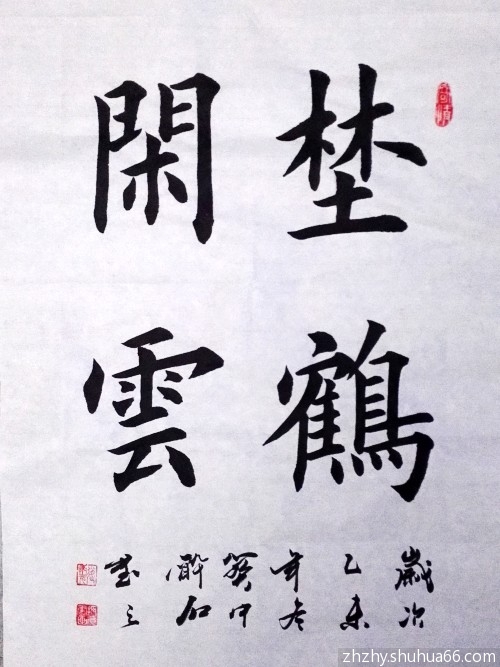 埜鶴
閑雲
歲次
乙未
年冬
中
石
書之
zhzhyshuhua66.com